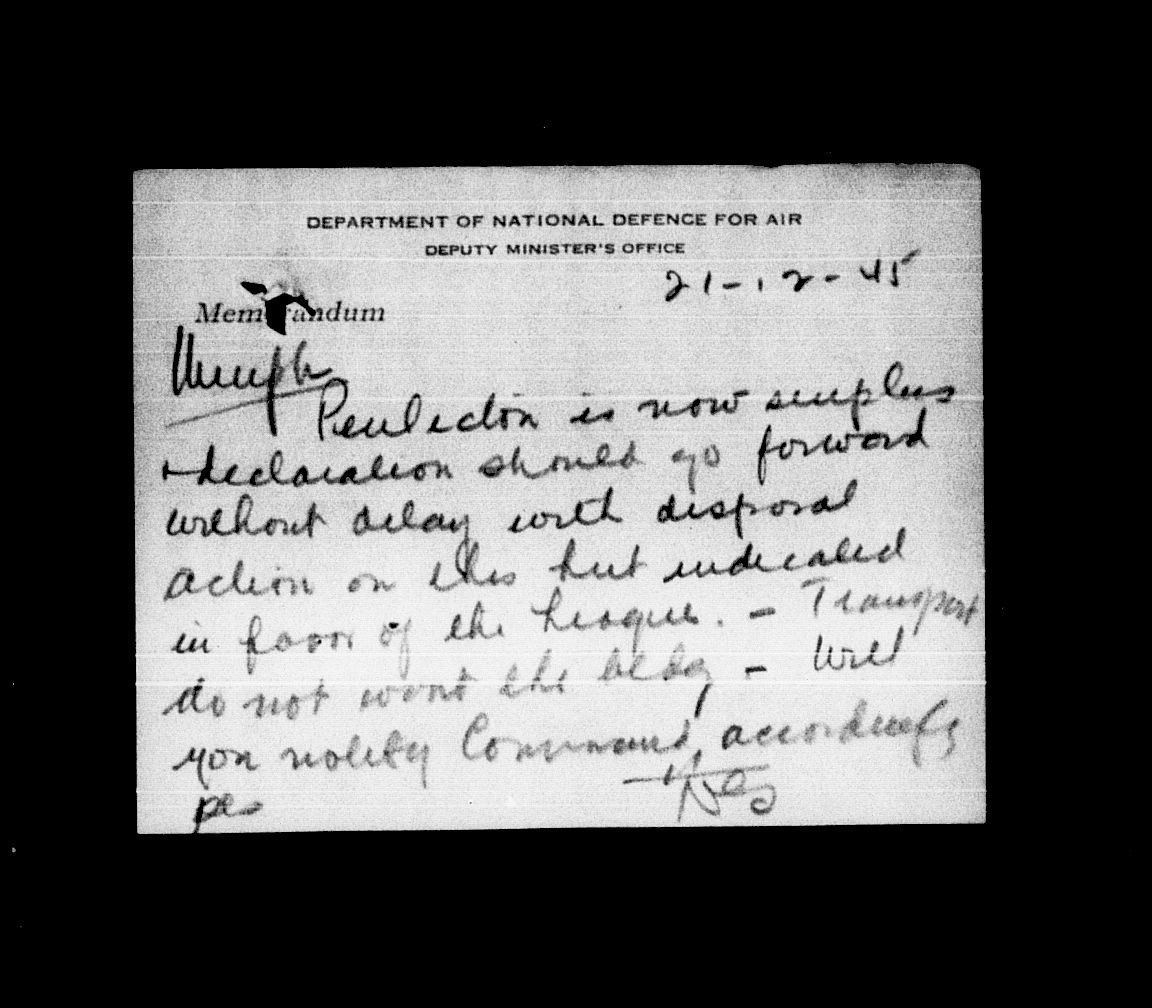 DEPARTMENT OF NATIONAL DEFENCE FOR AIR
DEPUTY MINISTER'S OFFICE
21-12-45
Memorandum
Penticton is now surplus
+ declaration should go forward
without delay with disposal
action on this hut indicated
in favor of the League. - Transport
do not want the bldg, - Will
you notify Command accordingly
pls